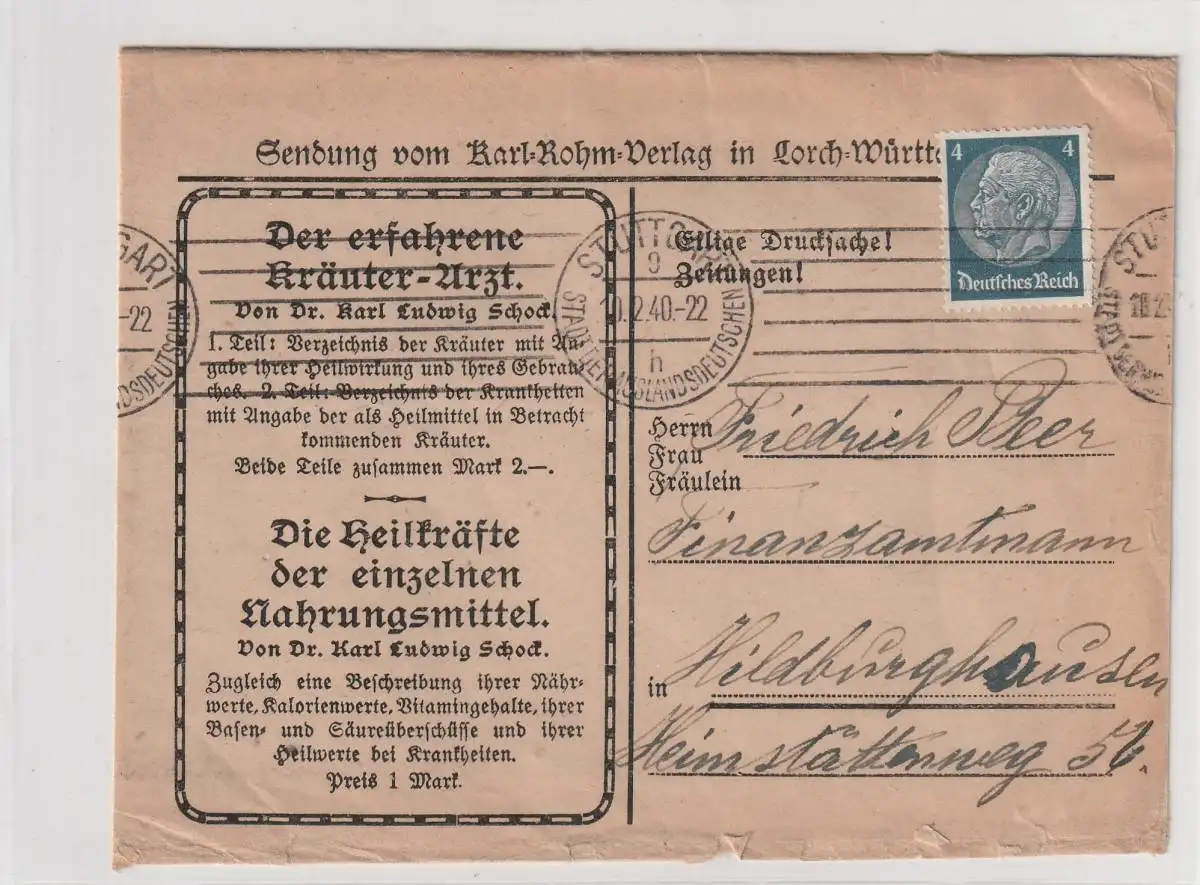 Sendung vom Karl-Rohm-Verlag in Lorch-Württ
4 4
Deutsches Reich
Der erfahrene
Kräuter-Arzt.
Von Dr. Karl Ludwig Schock.
1. Teil: Verzeichnis der Kräuter mit An-
gabe ihrer Heilwirkung und ihres Gebrau-
ches. 2. Teil: Verzeichnis der Krankheiten
mit Angabe der als Heilmittel in Betracht
kommenden Kräuter.
Beide Teile zusammen Mark 2.—.
Die Heilkräfte
der einzelnen
Nahrungsmittel.
Von Dr. Karl Ludwig Schock.
Zugleich eine Beschreibung ihrer Nähr-
werte, Kalorienwerte, Vitamingehalte, ihrer
Basen- und Säureüberschüsse und ihrer
Heilwerte bei Krankheiten.
Preis 1 Mark.
GART
-22
LANDSDEUTSCHEN
STUTTGART
9
10.2.40.-22
h
STADT DER AUSLANDSDEUTSCHEN
STU
10.2
Eilige Drucksache!
Zeitungen!
Herrn Friedrich Beer
Frau
Fräulein
Finanzamtmann
in Hildburghausen
Heimstättenweg